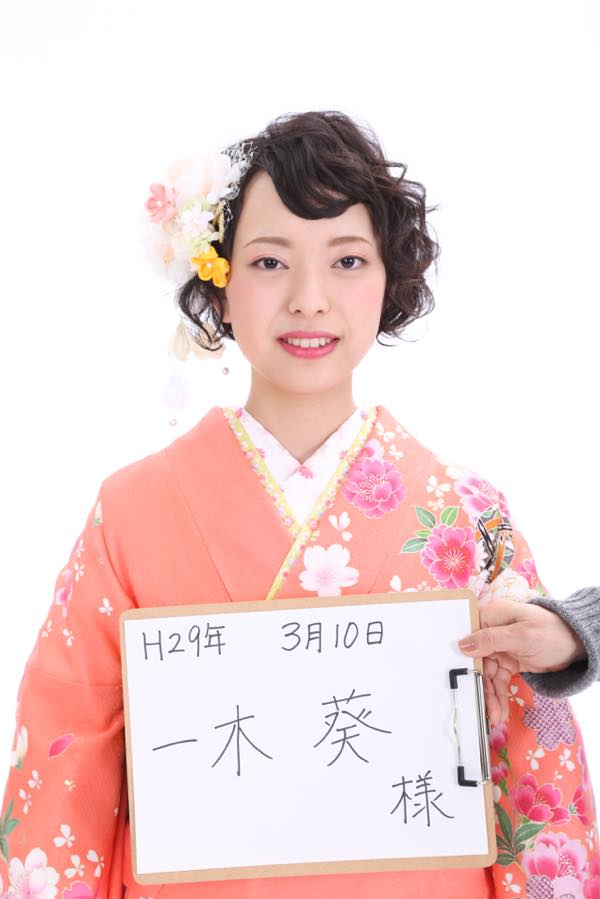 H29年 3月10日
一木 葵
様